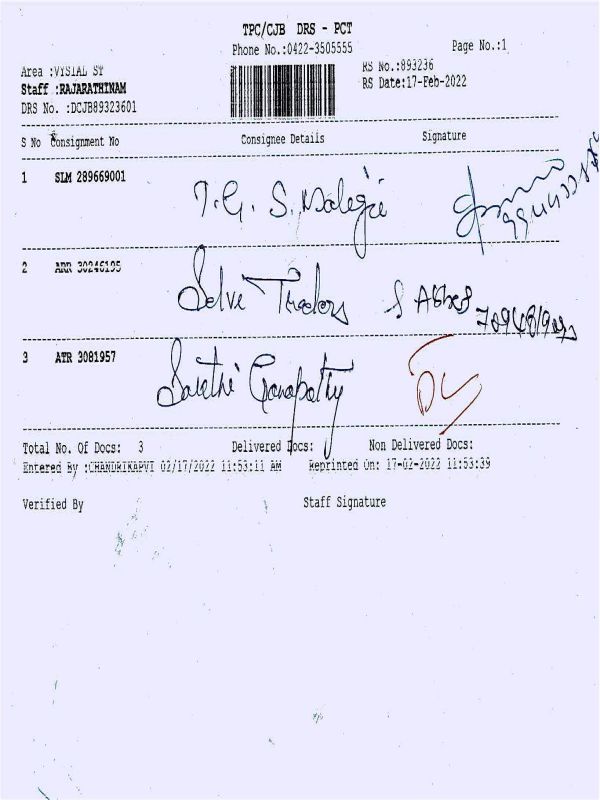 TPC/CJB DRS - PCT
Phone No.:0422-3505555 Page No.:1
Area :VYSIAL ST RS No.:893236
Staff :RAJARATHINAM RS Date:17-Feb-2022
DRS No. :DCJB89323601
S No Consignment No Consignee Details Signature
1 SLM 289669001 T. G. S.
2 ARR 30246195 Selve Traders
3 ATR 3081957 Sarathi Ganapathy
Total No. Of Docs: 3 Delivered Docs: Non Delivered Docs:
Entered By :CHANDRIKAPVT 02/17/2022 11:53:11 AM Reprinted On: 17-02-2022 11:53:39
Verified By Staff Signature